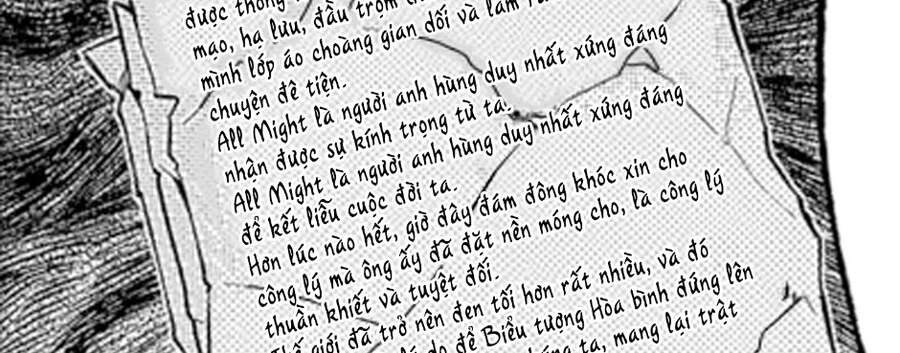 được thông
mạo, hạ lưu, đầu trộm
mình lớp áo choàng gian dối và làm
chuyện đê tiện.
All Might là người anh hùng duy nhất xứng đáng
nhận được sự kính trọng từ ta.
All Might là người anh hùng duy nhất xứng đáng
để kết liễu cuộc đời ta.
Hơn lúc nào hết, giờ đây đám đông khóc xin cho
công lý mà ông ấy đã đặt nền móng cho, là công lý
thuần khiết và tuyệt đối.
Thế giới đã trở nên đen tối hơn rất nhiều, và đó
do để Biểu tượng Hòa bình đứng lên
ta, mang lại trật